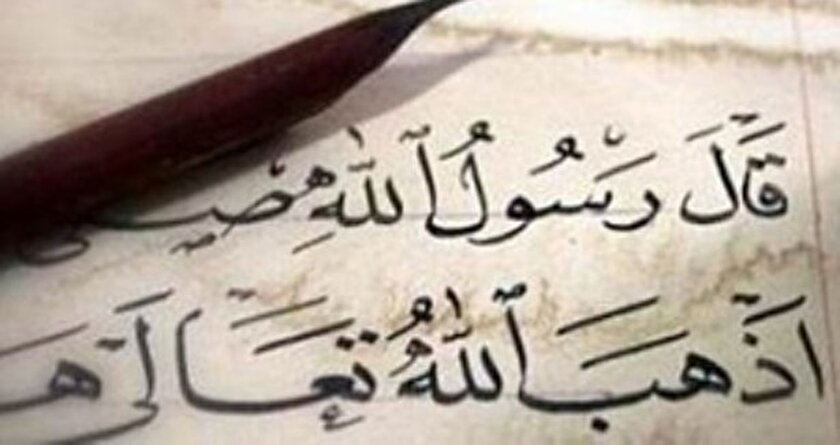 قَالَ رَسُولُ ٱللَّهِ
اَذْهَبَ ٱللَّهُ تَعَالَىٰ